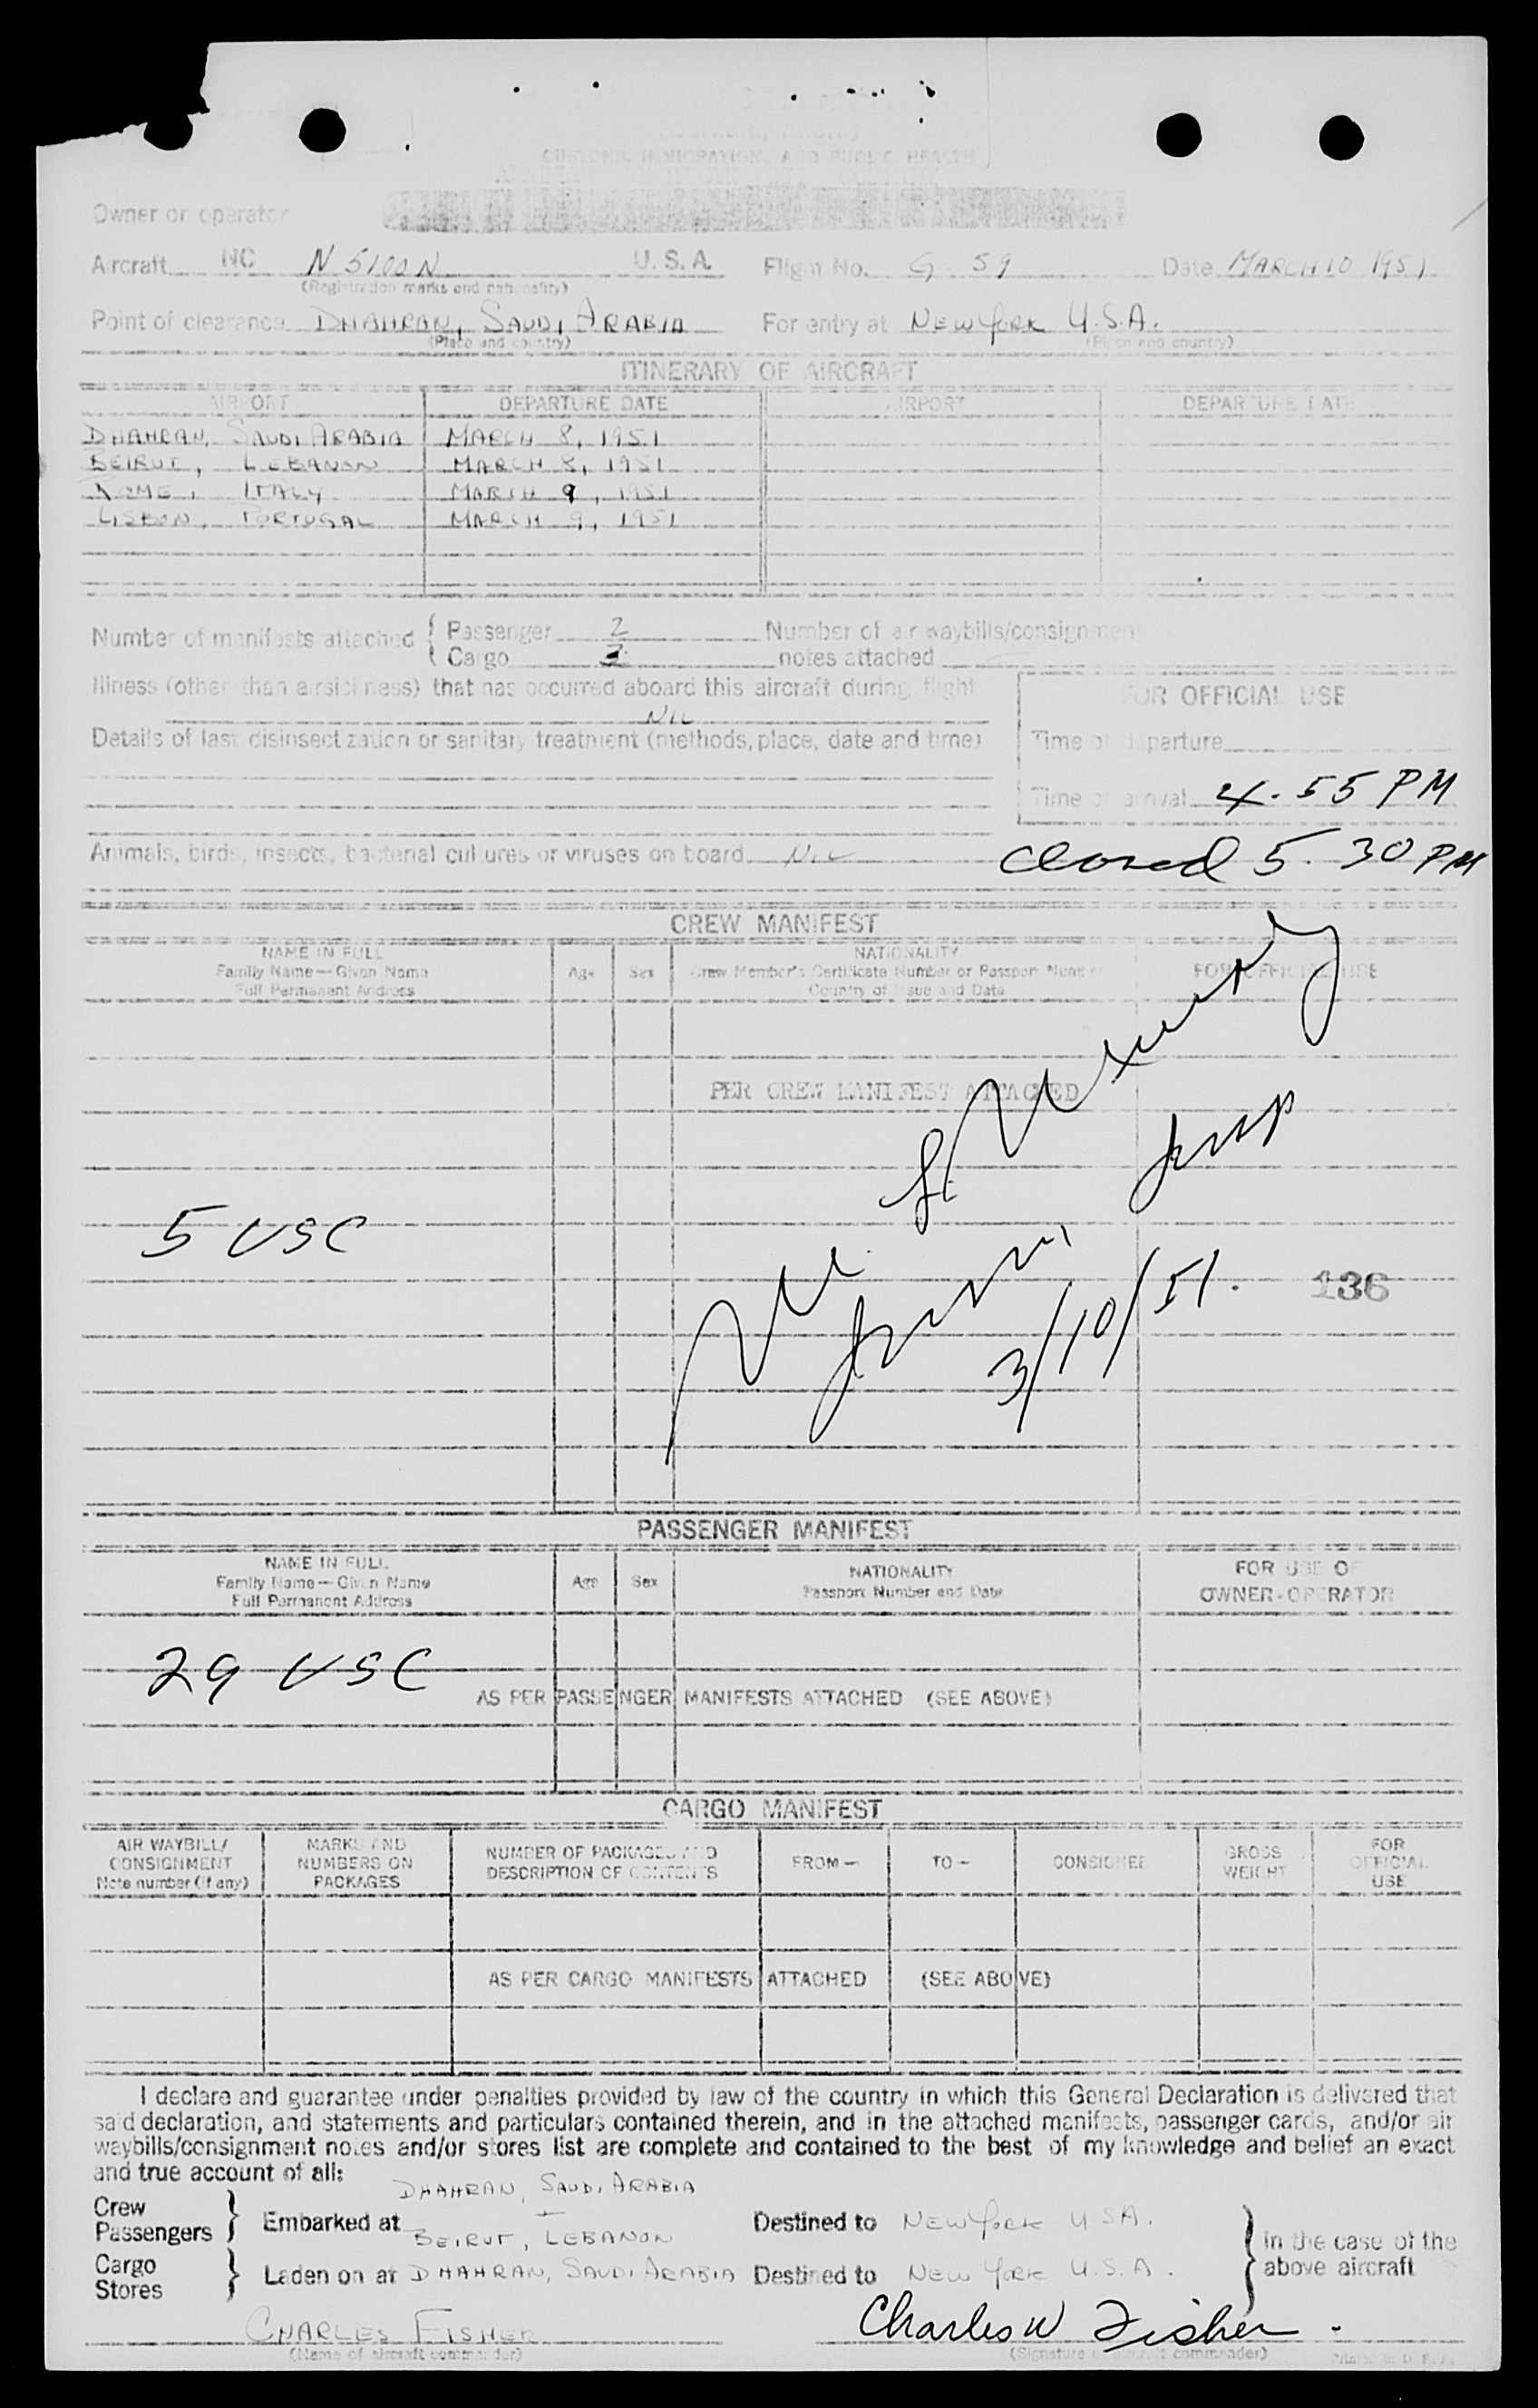 CUSTOMS, IMMIGRATION, AND PUBLIC HEALTH
Owner or operator
Aircraft NC N 5100N U.S.A. Flight No. G 59 Date MARCH 10 1951
(Registration marks and nationality)
Point of clearance DHAHRAN, SAUDI ARABIA For entry at NEW YORK U.S.A.
(Place and country) (Place and country)
ITINERARY OF AIRCRAFT
AIRPORT DEPARTURE DATE AIRPORT DEPARTURE DATE
DHAHRAN, SAUDI ARABIA MARCH 8, 1951
BEIRUT, LEBANON MARCH 8, 1951
ROME, ITALY MARCH 9, 1951
LISBON, PORTUGAL MARCH 9, 1951
Number of manifests attached { Passenger 2 Number of air waybills/consignment
Cargo 3 notes attached
Illness (other than airsickness) that has occurred aboard this aircraft during flight
NIL
FOR OFFICIAL USE
Details of last disinsectization or sanitary treatment (methods, place, date and time)
Time of departure
Time of arrival 4.55 PM
Animals, birds, insects, bacterial cultures or viruses on board NIL
Closed 5.30 PM
CREW MANIFEST
NAME IN FULL
Family Name—Given Name
Full Permanent Address
Age Sex
NATIONALITY
Crew Member's Certificate Number or Passport Number
Country of Issue and Date
FOR OFFICIAL USE
PER CREW MANIFEST ATTACHED
5 USC
3/10/51.
136
PASSENGER MANIFEST
NAME IN FULL
Family Name—Given Name
Full Permanent Address
Age Sex
NATIONALITY
Passport Number and Date
FOR USE OF
OWNER-OPERATOR
29 USC
AS PER PASSENGER MANIFESTS ATTACHED (SEE ABOVE)
CARGO MANIFEST
AIR WAYBILL/
CONSIGNMENT
Note number (if any)
MARKS AND
NUMBERS ON
PACKAGES
NUMBER OF PACKAGES AND
DESCRIPTION OF CONTENTS
FROM— TO— CONSIGNEE
GROSS
WEIGHT
FOR
OFFICIAL
USE
AS PER CARGO MANIFESTS ATTACHED (SEE ABOVE)
I declare and guarantee under penalties provided by law of the country in which this General Declaration is delivered that
said declaration, and statements and particulars contained therein, and in the attached manifests, passenger cards, and/or air
waybills/consignment notes and/or stores list are complete and contained to the best of my knowledge and belief an exact
and true account of all:
DHAHRAN, SAUDI ARABIA
Crew
Passengers } Embarked at BEIRUT, LEBANON Destined to NEW YORK U.S.A.
in the case of the
above aircraft
Cargo
Stores } Laden on at DHAHRAN, SAUDI ARABIA Destined to NEW YORK U.S.A.
CHARLES FISHER Charles W Fisher.
(Name of aircraft commander) (Signature of aircraft commander)